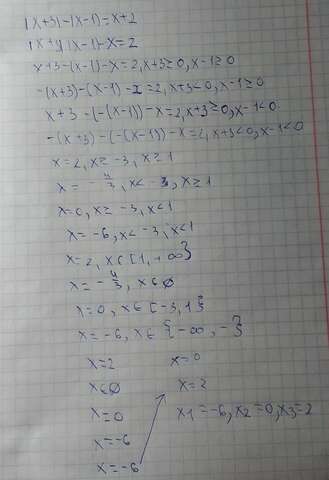 |x+3|-|x-1|=x+2
|x+3|-|x-1|-x=2
x+3-(x-1)-x=2, x+3≥0, x-1≥0
-(x+3)-(x-1)-x=2, x+3<0, x-1≥0
x+3-(-(x-1))-x=2, x+3≥0, x-1<0
-(x+3)-(-(x-1))-x=2, x+3<0, x-1<0
x=2, x≥-3, x≥1
x=-4/3, x<-3, x≥1
x=0, x≥-3, x<1
x=-6, x<-3, x<1
x=2, x∈[1,+∞}
x=-4/3, x∈∅
x=0, x∈[-3,1}
x=-6, x∈{-∞,-3}
x=2
x∈∅
x=0
x=-6
x=-6
x=0
x=2
x1=-6, x2=0, x3=2